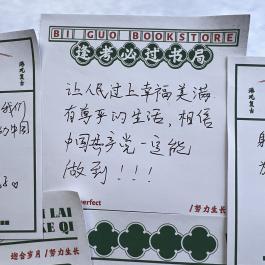 BI GUO BOOKSTORE
逢考必过书局
让人民过上幸福美满
有尊严的生活，相信
中国共产党一定能
做到！！！
perfect
/努力生长
港风复古
我们
中国
港风复古
LAI
KE QI
迎合岁月 / 努力生长